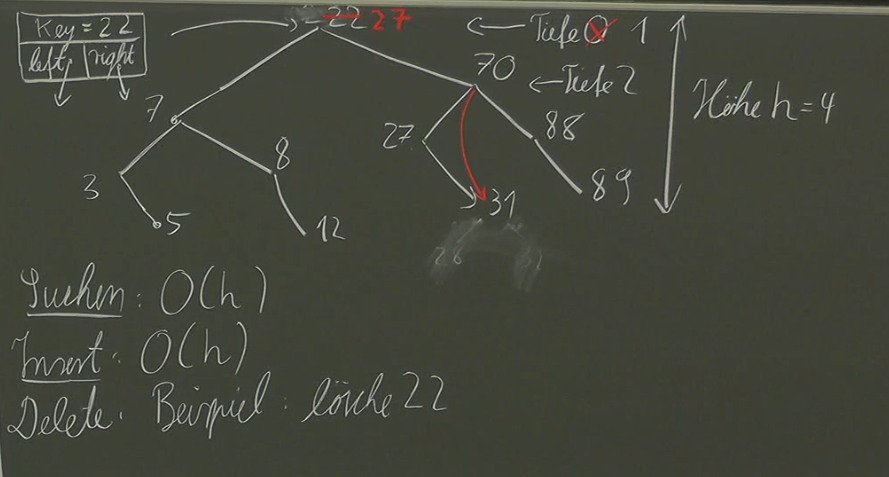 Key = 22
left right
22 27
Tiefe 0 1
70
Tiefe 2
Höhe h = 4
7
8
27
88
3
5
12
31
89
Suchen: O(h)
Insert: O(h)
Delete: Beispiel: lösche 22